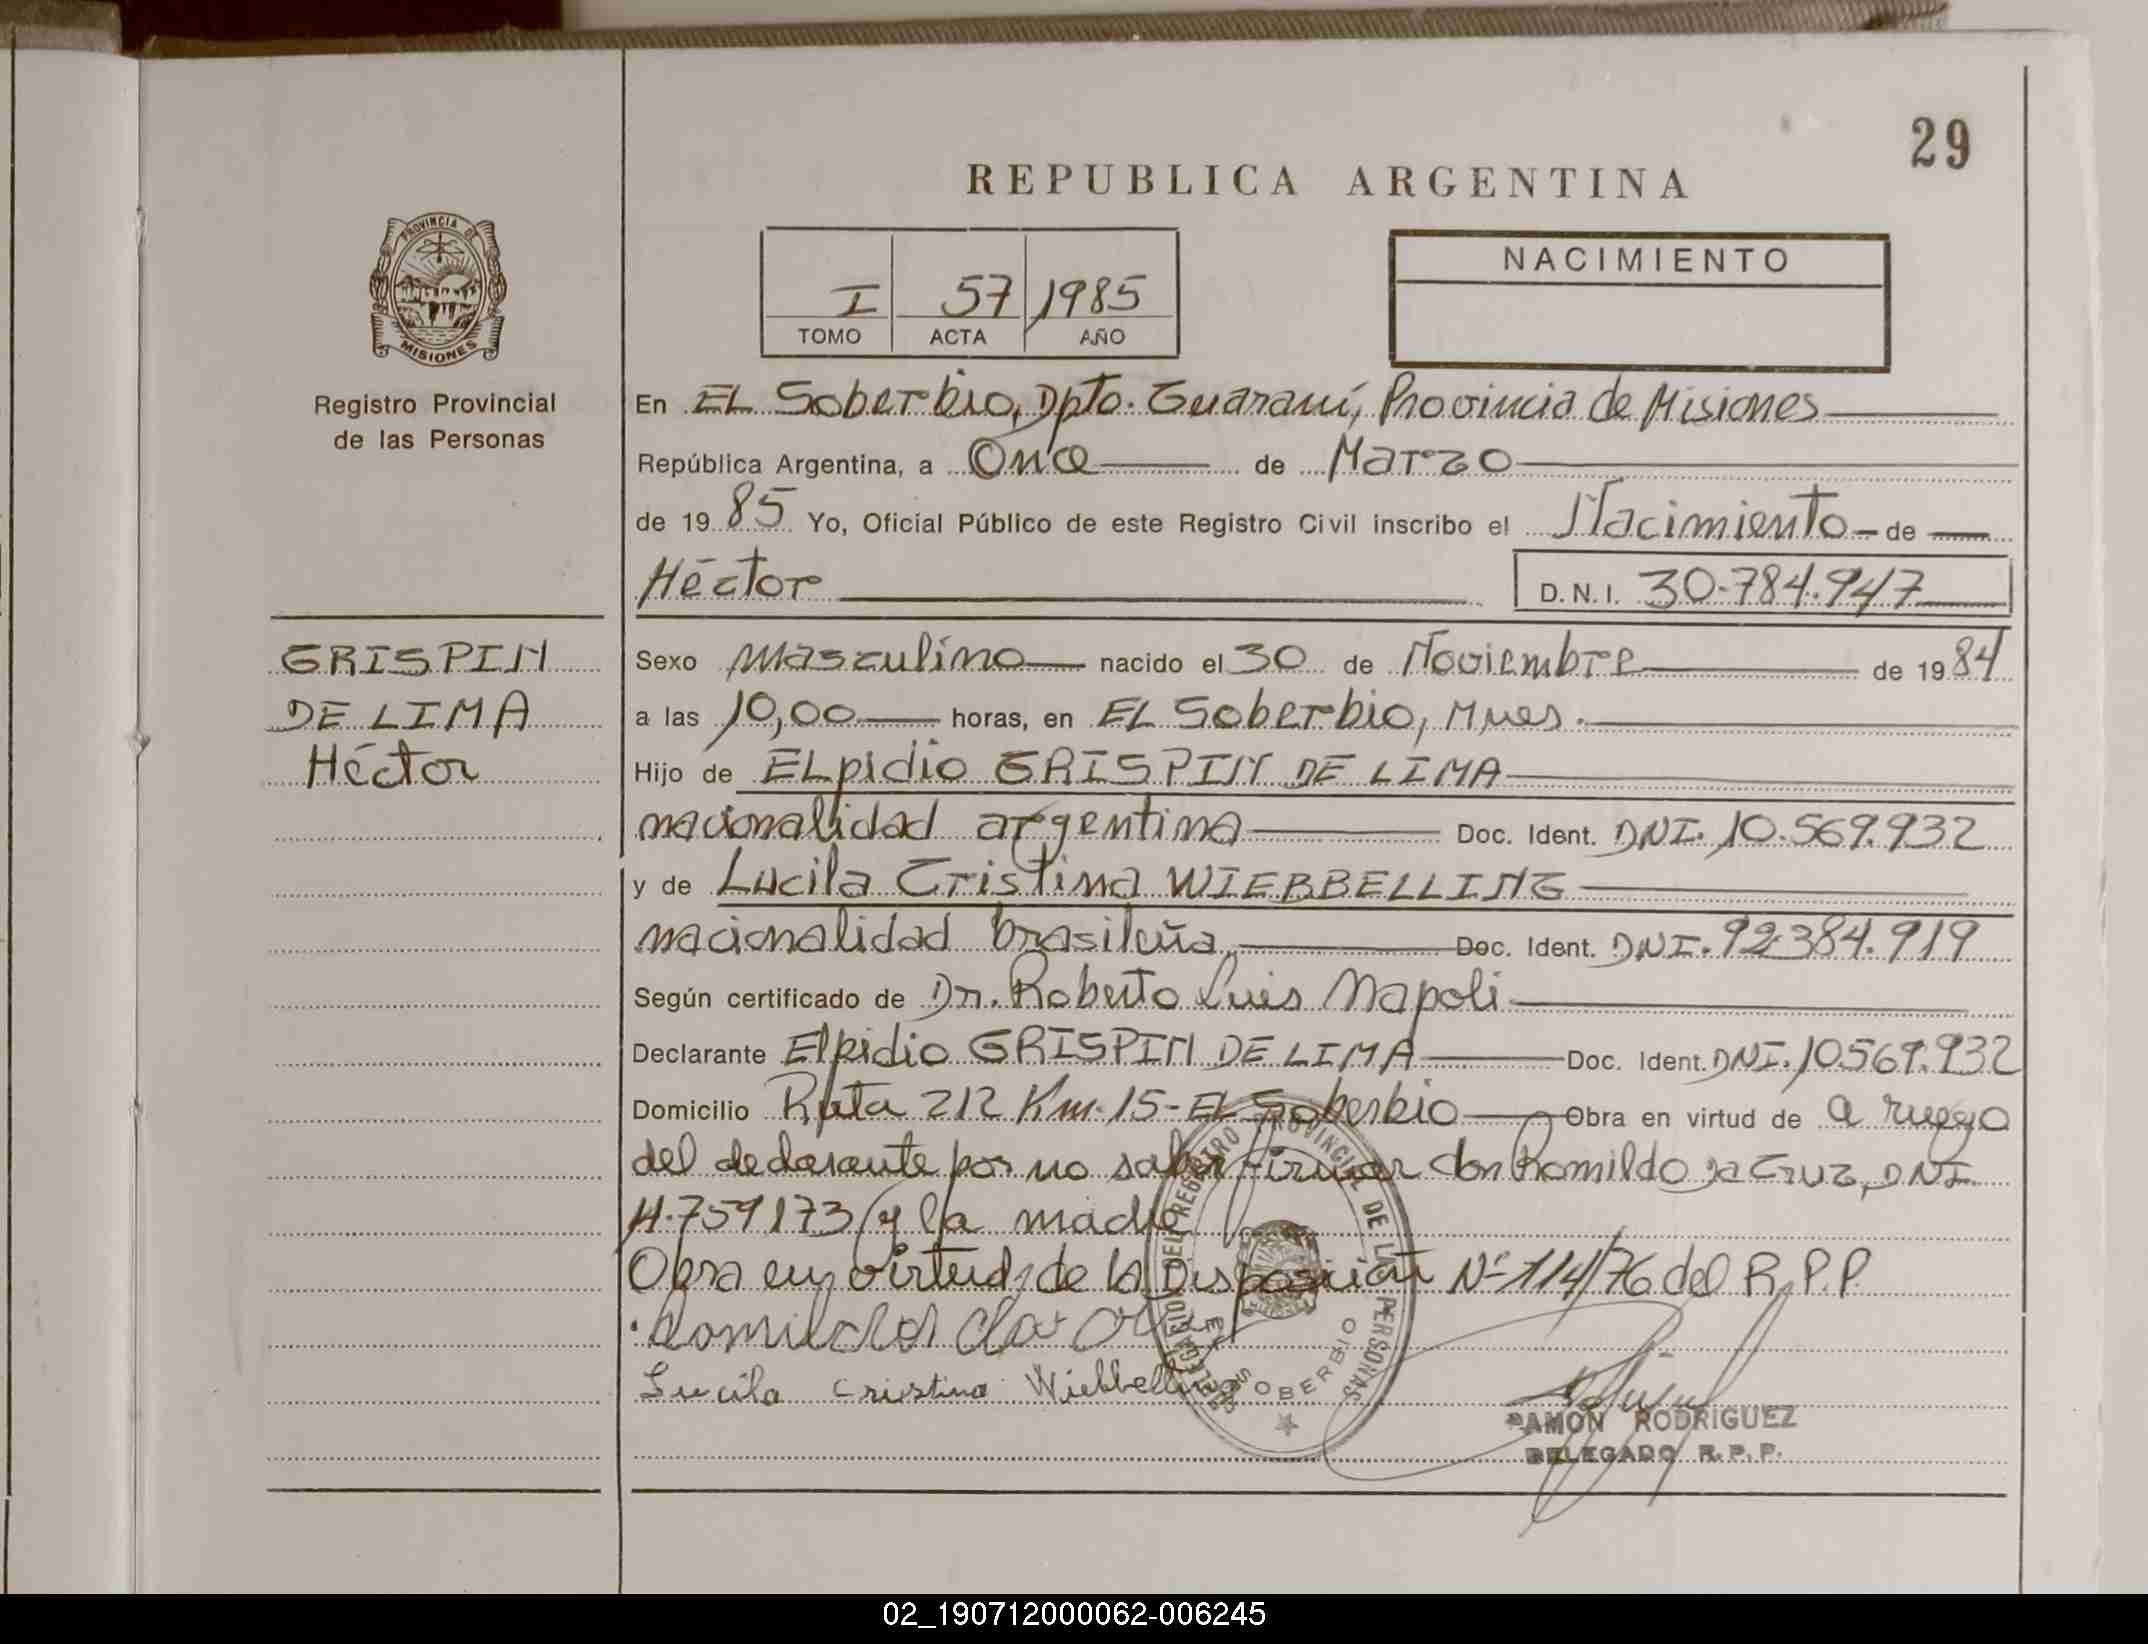 29
REPUBLICA ARGENTINA
PROVINCIA DE
MISIONES
Registro Provincial
de las Personas
I 57 1985
TOMO ACTA AÑO
NACIMIENTO
En EL Soberbio, Dpto. Guaraní, Provincia de Misiones
República Argentina, a Once de Marzo
de 1985 Yo, Oficial Público de este Registro Civil inscribo el Nacimiento de
Héctor D.N.I. 30.784.947
GRISPIN
DE LIMA
Héctor
Sexo masculino nacido el 30 de Noviembre de 1984
a las 10,00 horas, en EL Soberbio, Mnes.
Hijo de ELpidio GRISPIN DE LIMA
nacionalidad argentina Doc. Ident. DNI. 10.569.932
y de Lucila Cristina WIEBBELLING
nacionalidad brasileña Doc. Ident. DNI. 92.384.919
Según certificado de Dr. Roberto Luis Napoli
Declarante Elpidio GRISPIN DE LIMA Doc. Ident. DNI. 10.569.932
Domicilio Ruta 212 Km. 15 - EL Soberbio Obra en virtud de a ruego
del declarante por no saber firmar don Romildo da Cruz, DNI
759173 y la madre
Obra en virtud de la Disposición Nº 114/76 del R.P.P.
Lucila Cristina Wiebbelling
DELEGACION DEL REGISTRO PROVINCIAL DE LAS PERSONAS
EL SOBERBIO
RAMON RODRIGUEZ
DELEGADO R.P.P.
02_190712000062-006245